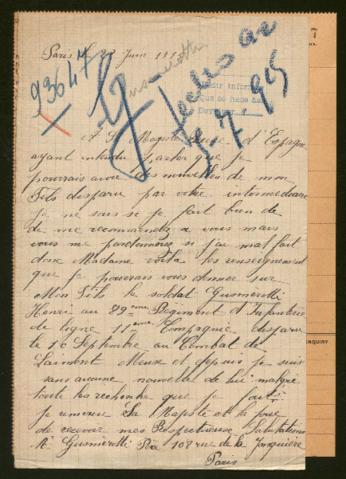 Paris le 28 Juin 1915
93647
Gusmerotti
A Sa Majesté d'Espagne
ayant entendu parler que je
pourrais avoir des nouvelles de mon
Fils disparu par votre intermediaire
je ne sais si je fait bien de
me recommender a vous mais
vous me pardonnerez si j'ai mal fait
donc Madame voila les renseignement
que je pouvais vous donner sur
Mon Fils le soldat Gusmerotti
Henri au 89eme Regiment d'Infanterie
de ligne 11eme Compagnie disparu
le 10 Septembre au Combat de
Laimont Meuse et depuis je suis
sans aucune nouvelle de lui malgré
toute les recherche que je fait
je remercie Sa Majesté et la prie
de recevoir mes Respectueuse Salutations
Gusmerotti 108 rue de la Jonquière
Paris